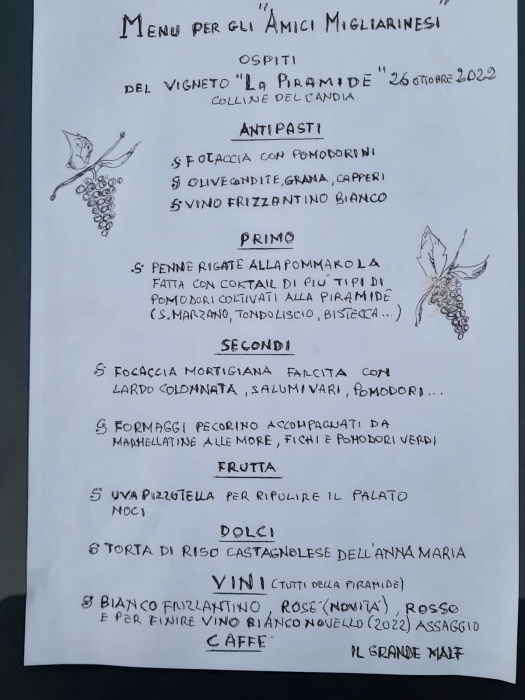 MENU PER GLI "AMICI MIGLIARINESI"
OSPITI
DEL VIGNETO "LA PIRAMIDE" 26 OTTOBRE 2022
COLLINE DEL CANDIA
ANTIPASTI
§ FOCACCIA CON POMODORINI
§ OLIVE CONDITE, GRANA, CAPPERI
§ VINO FRIZZANTINO BIANCO
PRIMO
§ PENNE RIGATE ALLA POMMAROLA
FATTA CON COKTAIL DI PIU' TIPI DI
POMODORI COLTIVATI ALLA PIRAMIDE
(S. MARZANO, TONDOLISCIO, BISTECCA...)
SECONDI
§ FOCACCIA MORTIGIANA FARCITA CON
LARDO COLONNATA, SALUMI VARI, POMODORI...
§ FORMAGGI PECORINO ACCOMPAGNATI DA
MARMELLATINE ALLE MORE, FICHI E POMODORI VERDI
FRUTTA
§ UVA PIZZUTELLA PER RIPULIRE IL PALATO
NOCI
DOLCI
§ TORTA DI RISO CASTAGNOLESE DELL'ANNA MARIA
VINI (TUTTI DELLA PIRAMIDE)
§ BIANCO FRIZZANTINO, ROSE' (NOVITA'), ROSSO
E PER FINIRE VINO BIANCO NOVELLO (2022) ASSAGGIO
CAFFE'
IL GRANDE MALF